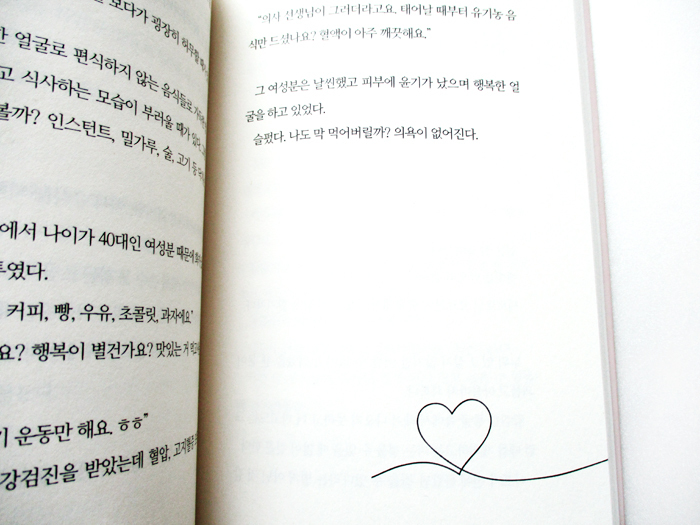 보다가 굉장히
한 얼굴로 편식하지 않는 음식들로
고 식사하는 모습이 부러울 때가 있다.
볼까? 인스턴트, 밀가루, 술, 고기 등
에서 나이가 40대인 여성분 때문에
투였다.
커피, 빵, 우유, 초콜릿, 과자에요"
요? 행복이 별건가요? 맛있는 거
기 운동만 해요. ㅎㅎ"
강검진을 받았는데 혈압, 고지혈증
"의사 선생님이 그러더라고요. 태어날 때부터 유기농 음
식만 드셨나요? 혈액이 아주 깨끗해요."
그 여성분은 날씬했고 피부에 윤기가 났으며 행복한 얼
굴을 하고 있었다.
슬펐다. 나도 막 먹어버릴까? 의욕이 없어진다.